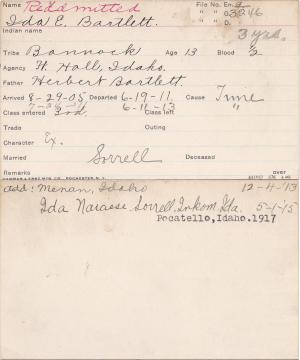 Name Readmitted File No. En. 2
Ida E. Bartlett. " " D. 3246
Indian name " " G.
3 yrs.
Tribe Bannock Age 13 Blood 2
Agency Ft. Hall, Idaho.
Father Herbert Bartlett.
Arrived 8-29-05 Departed 6-19-11. Cause Time
6-18-13 "
Class entered 3rd. Class left
Trade Outing
Character Ex.
Married Sorrell Deceased
Remarks over
add: Menan, Idaho 12-4-'13
Ida Sorrell Inkom, Ida. 5-1-'15
Pocatello, Idaho. 1917